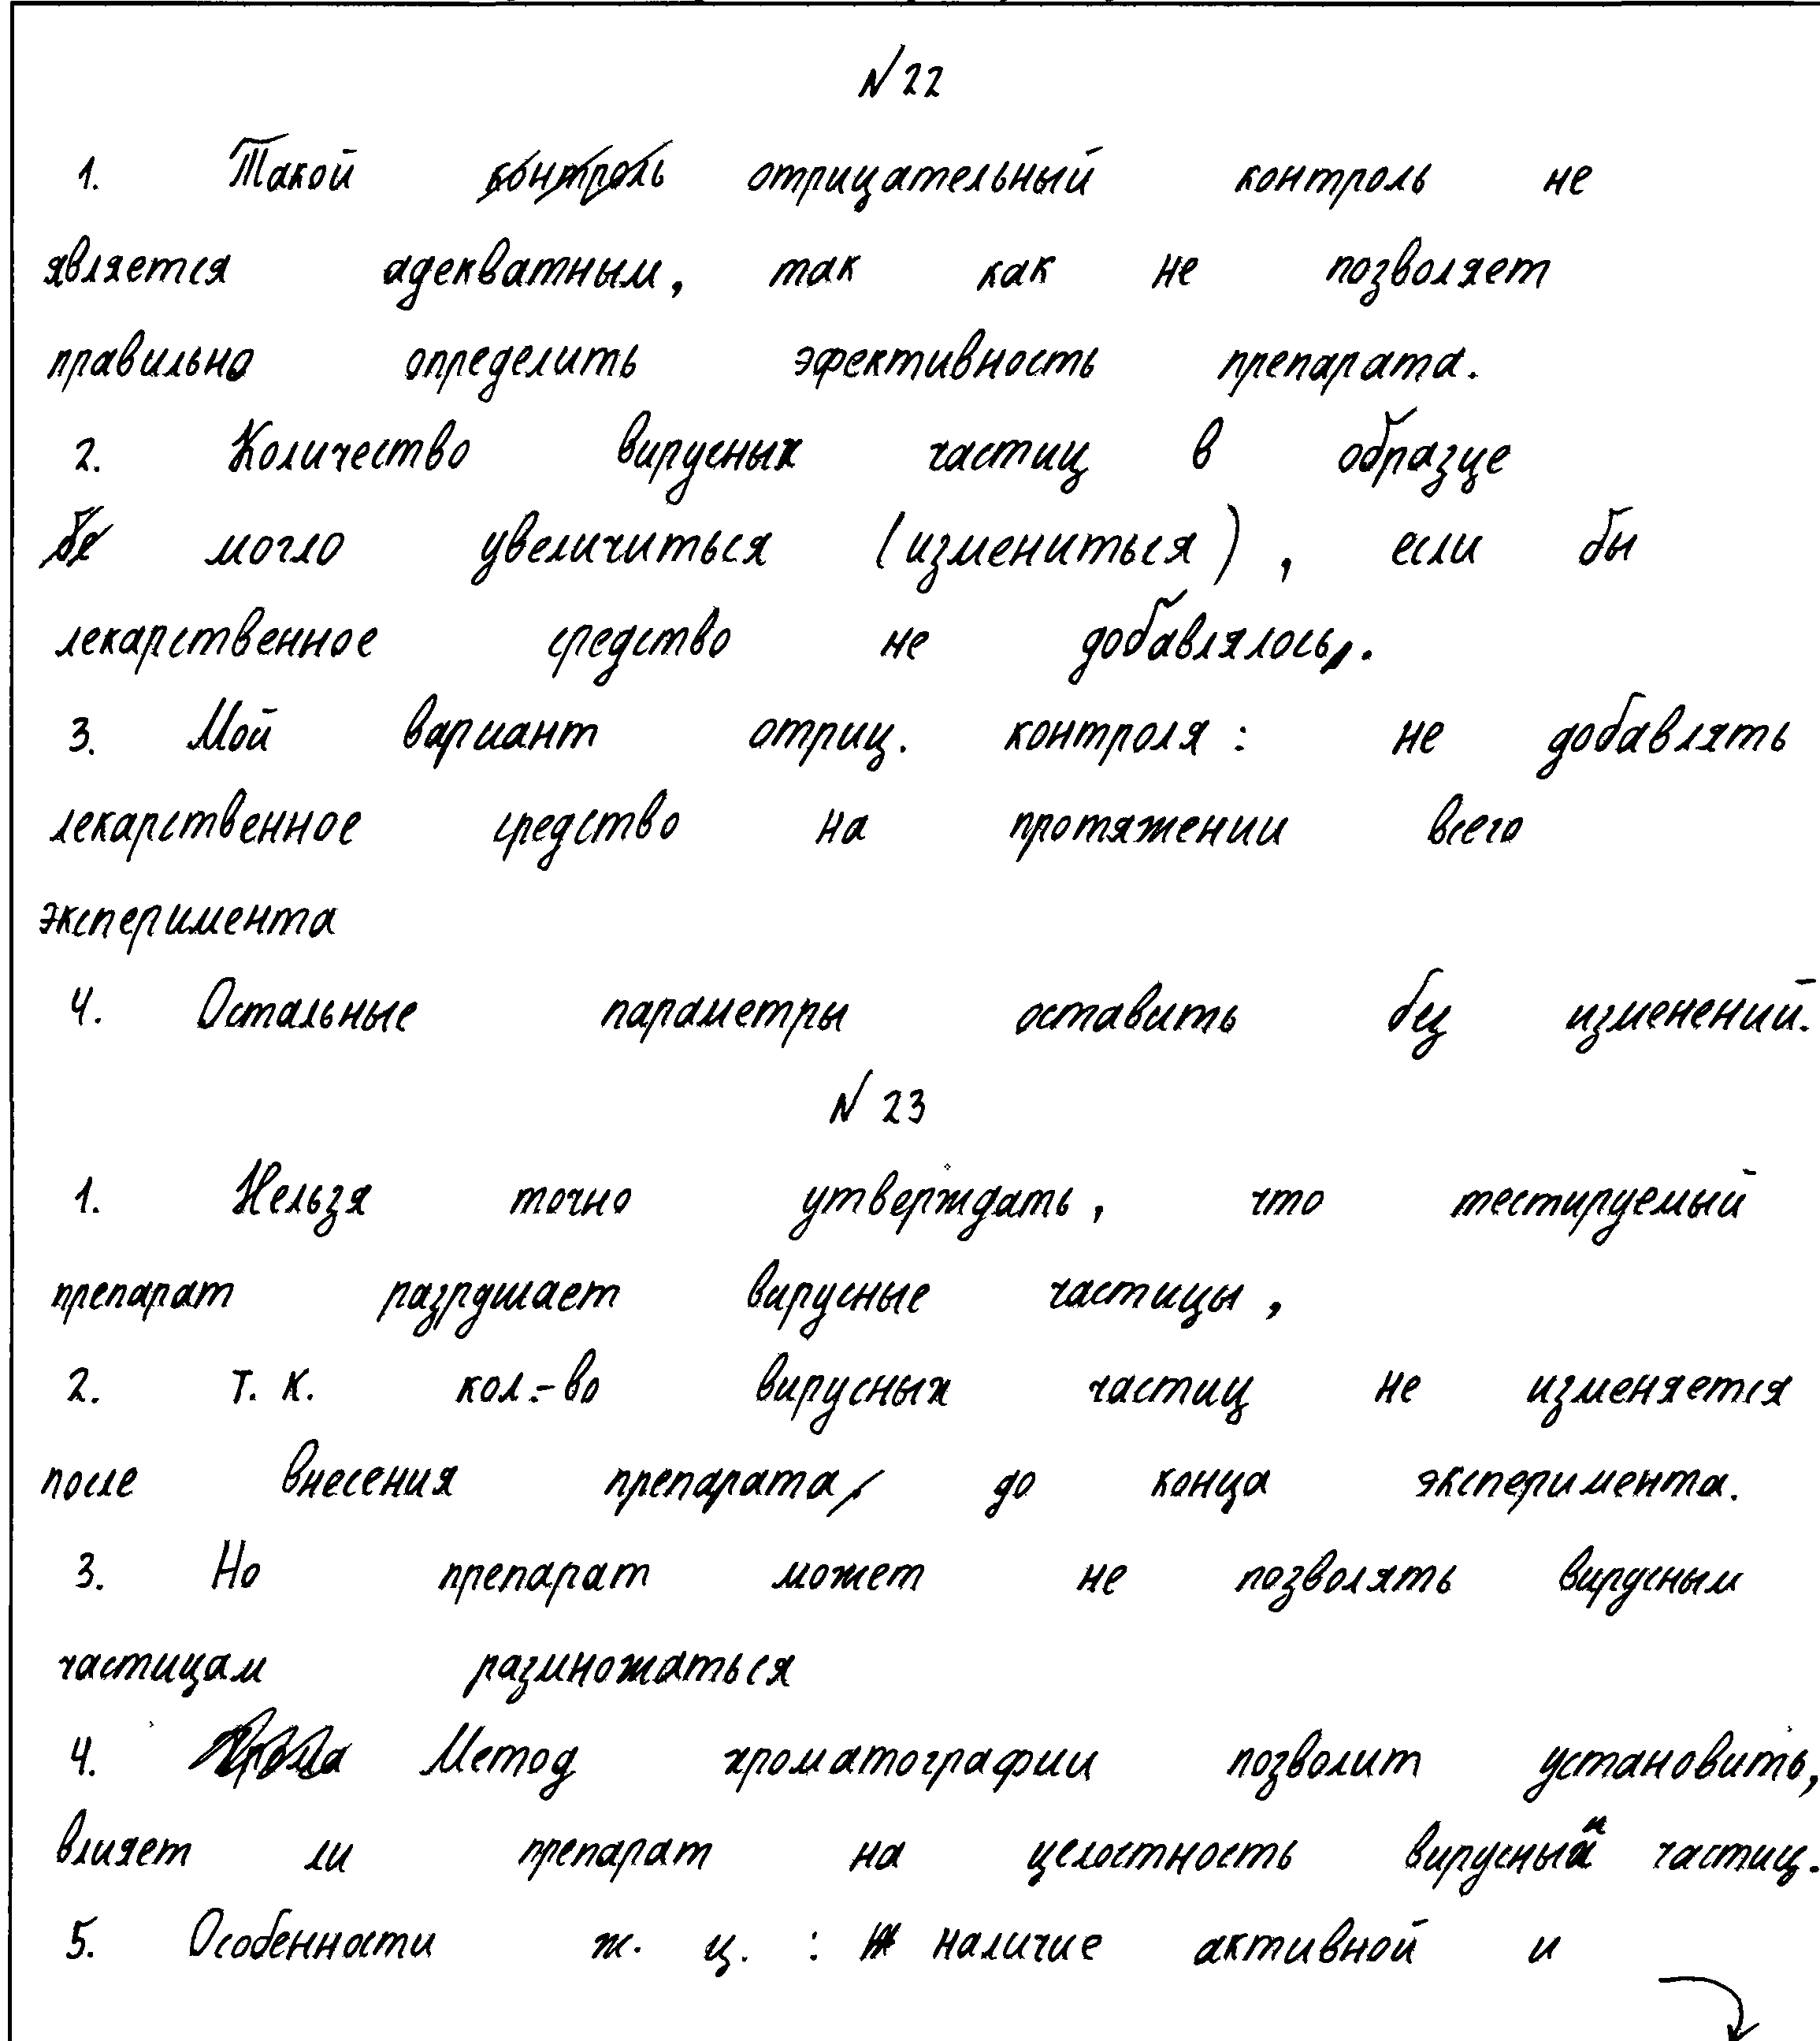 N 22
1. Такой контроль отрицательный контроль не
является адекватным, так как не позволяет
правильно определить эфективность препарата.
2. Количество вирусных частиц в образце
могло увеличиться (измениться), если бы
лекарственное средство не добавлялось.
3. Мой вариант отриц. контроля: не добавлять
лекарственное средство на протяжении всего
эксперимента
4. Остальные параметры оставить без изменений.
N 23
1. Нельзя точно утверждать, что тестируемый
препарат разрушает вирусные частицы,
2. т. к. кол-во вирусных частиц не изменяется
после внесения препарата до конца эксперимента.
3. Но препарат может не позволять вирусным
частицам размножаться
4. Метод хроматографии позволит установить,
влияет ли препарат на целостность вирусных частиц.
5. Особенности ж. ц. : наличие активной и